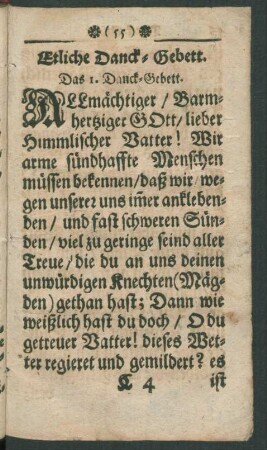 (55)
Etliche Danck-Gebett.
Das 1. Danck-Gebett.
ALLmächtiger / Barm-
hertziger GOtt / lieber
Himmlischer Vatter! Wir
arme sündhaffte Menschen
müssen bekennen / daß wir / we-
gen unserer uns im̃er ankleben-
den / und fast schweren Sün-
den / viel zu geringe seind aller
Treue / die du an uns deinen
unwürdigen Knechten (Mäg-
den) gethan hast; Dann wie
weißlich hast du doch / O du
getreuer Vatter! dieses Wet-
ter regieret und gemildert? es
C 4 ist